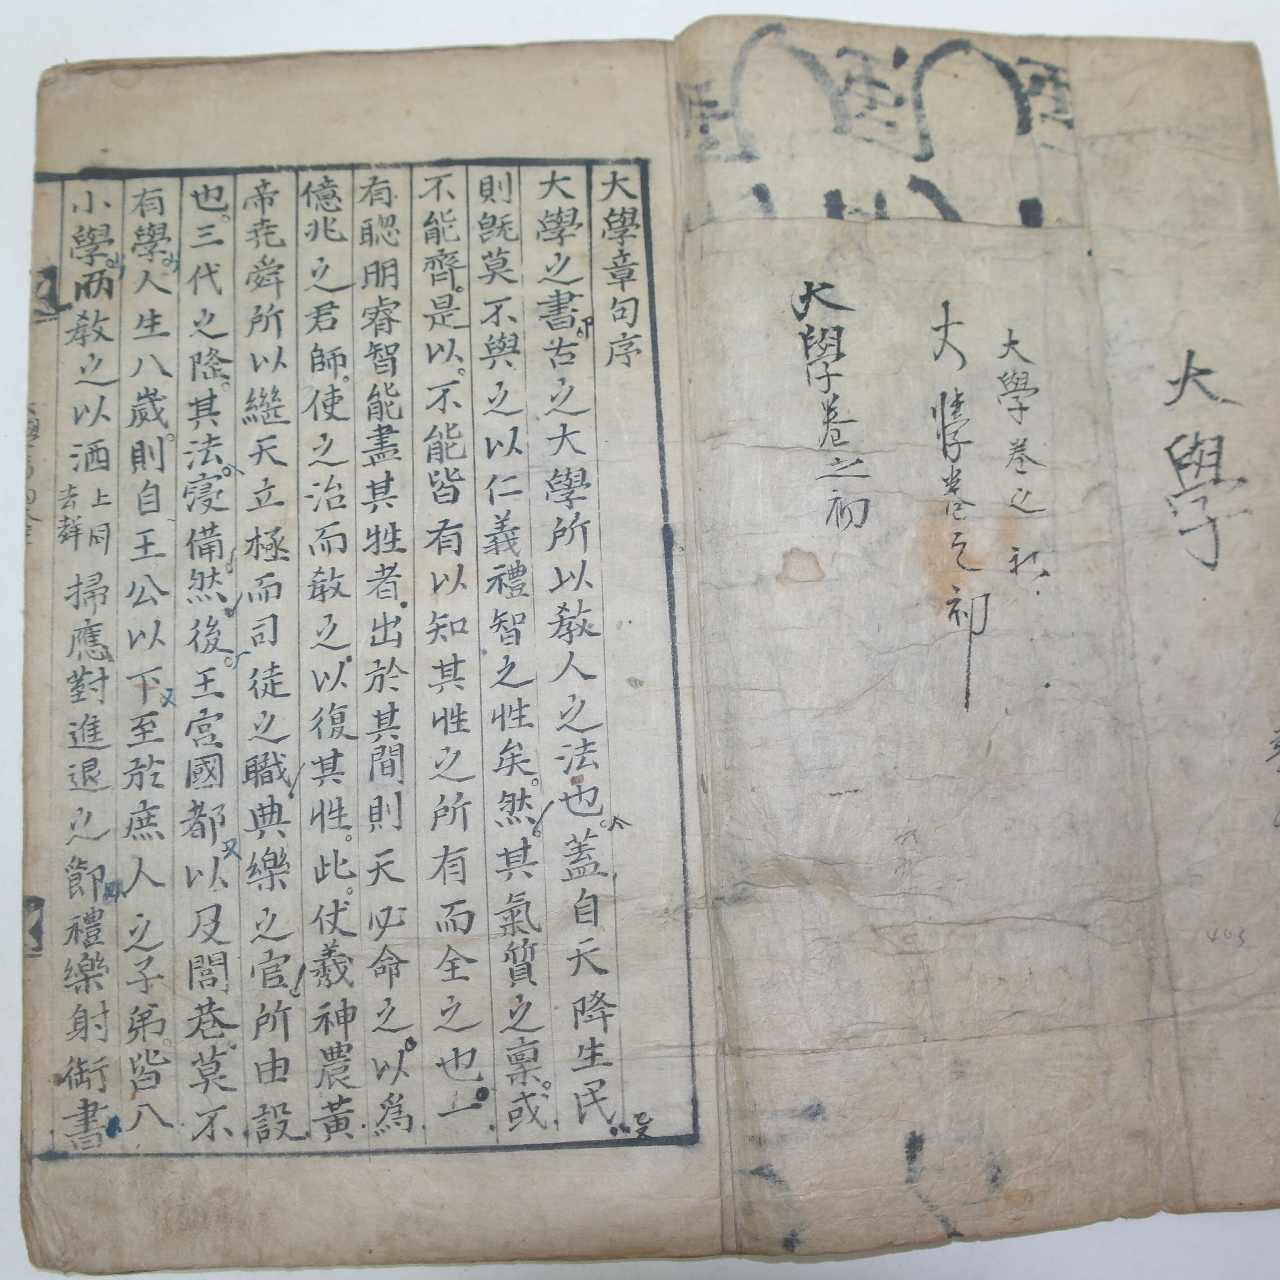 大學
大學卷之初
大學卷之初
大學卷之初
大學章句序
大學之書古之大學所以敎人之法也蓋自天降生民
則旣莫不與之以仁義禮智之性矣然其氣質之稟或
不能齊是以不能皆有以知其性之所有而全之也一
有聦明睿智能盡其性者出於其間則天必命之以爲
億兆之君師使之治而敎之以復其性此伏羲神農黃
帝堯舜所以繼天立極而司徒之職典樂之官所由設
也三代之隆其法寖備然後王宮國都以及閭巷莫不
有學人生八歲則自王公以下至於庶人之子弟皆入
小學而敎之以洒上同去聲掃應對進退之節禮樂射御書